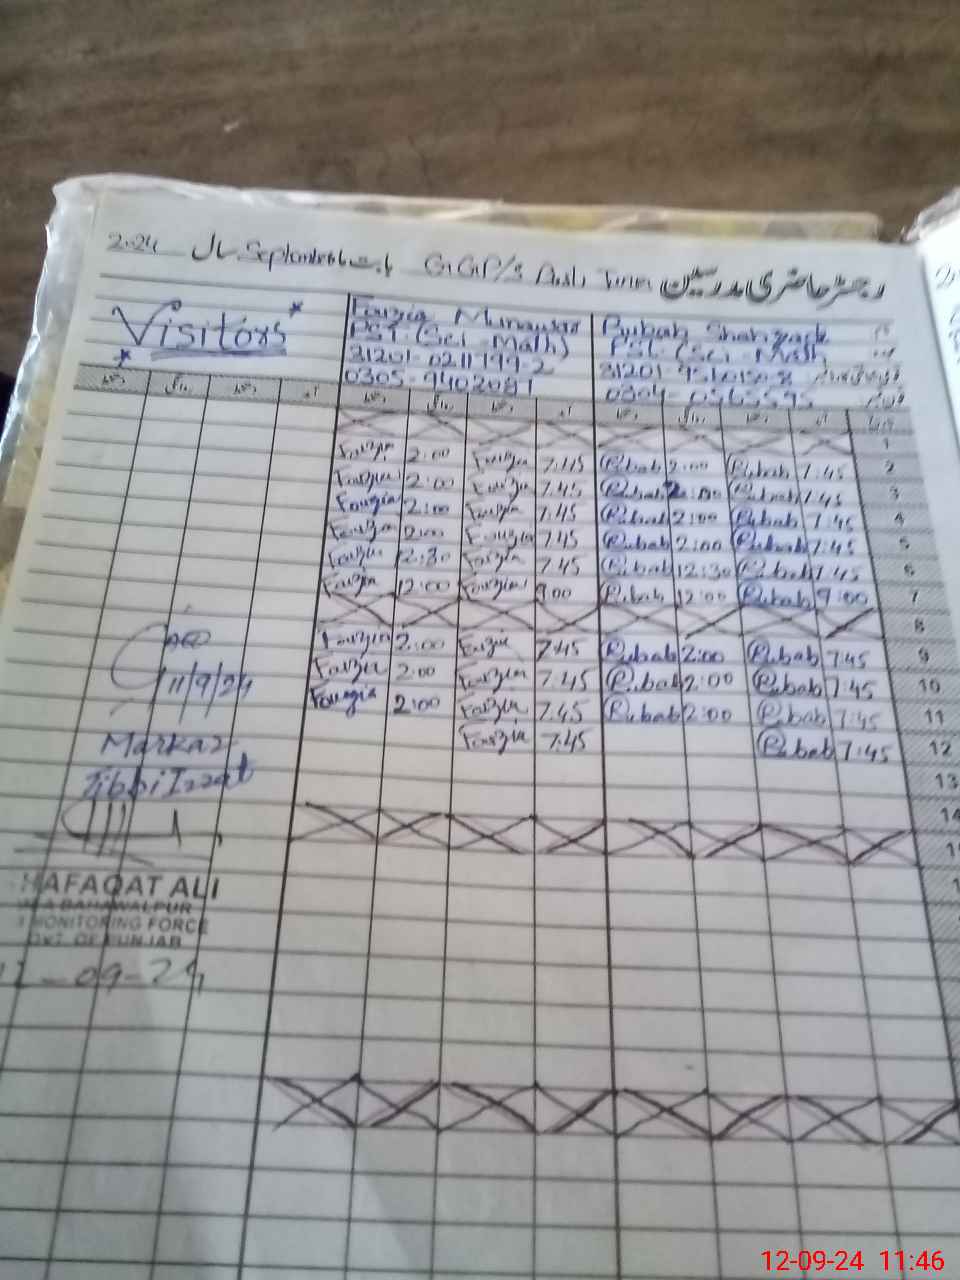 رجسٹر حاضری مدرسین GGP/S بابت September سال 2024
Visitors
Fouzia Munawar
PST (Sci-Math)
31201-0211799-2
0305-9402081
Rubab Shahzadi
PST (Sci-Math
31201-
0304-0565595
1
Fouzia 2:00 Fouzia 7:45 Rubab 2:00 Rubab 7:45 2
Fouzia 2:00 Fouzia 7:45 Rubab 2:00 Rubab 7:45 3
Fouzia 2:00 Fouzia 7:45 Rubab 2:00 Rubab 7:45 4
Fouzia 2:00 Fouzia 7:45 Rubab 2:00 Rubab 7:45 5
Fouzia 12:30 Fouzia 7:45 Rubab 12:30 Rubab 7:45 6
Fouzia 12:00 Fouzia 9:00 Rubab 12:00 Rubab 9:00 7
8
Fouzia 2:00 Fouzia 7:45 Rubab 2:00 Rubab 7:45 9
Fouzia 2:00 Fouzia 7:45 Rubab 2:00 Rubab 7:45 10
Fouzia 2:00 Fouzia 7:45 Rubab 2:00 Rubab 7:45 11
Fouzia 7:45 Rubab 7:45 12
13
14
11/9/24
Markaz
Tibbi Izzat
HAFAQAT ALI
MEA BAHAWALPUR
MONITORING FORCE
GOVT. OF PUNJAB
12-09-24
12-09-24 11:46